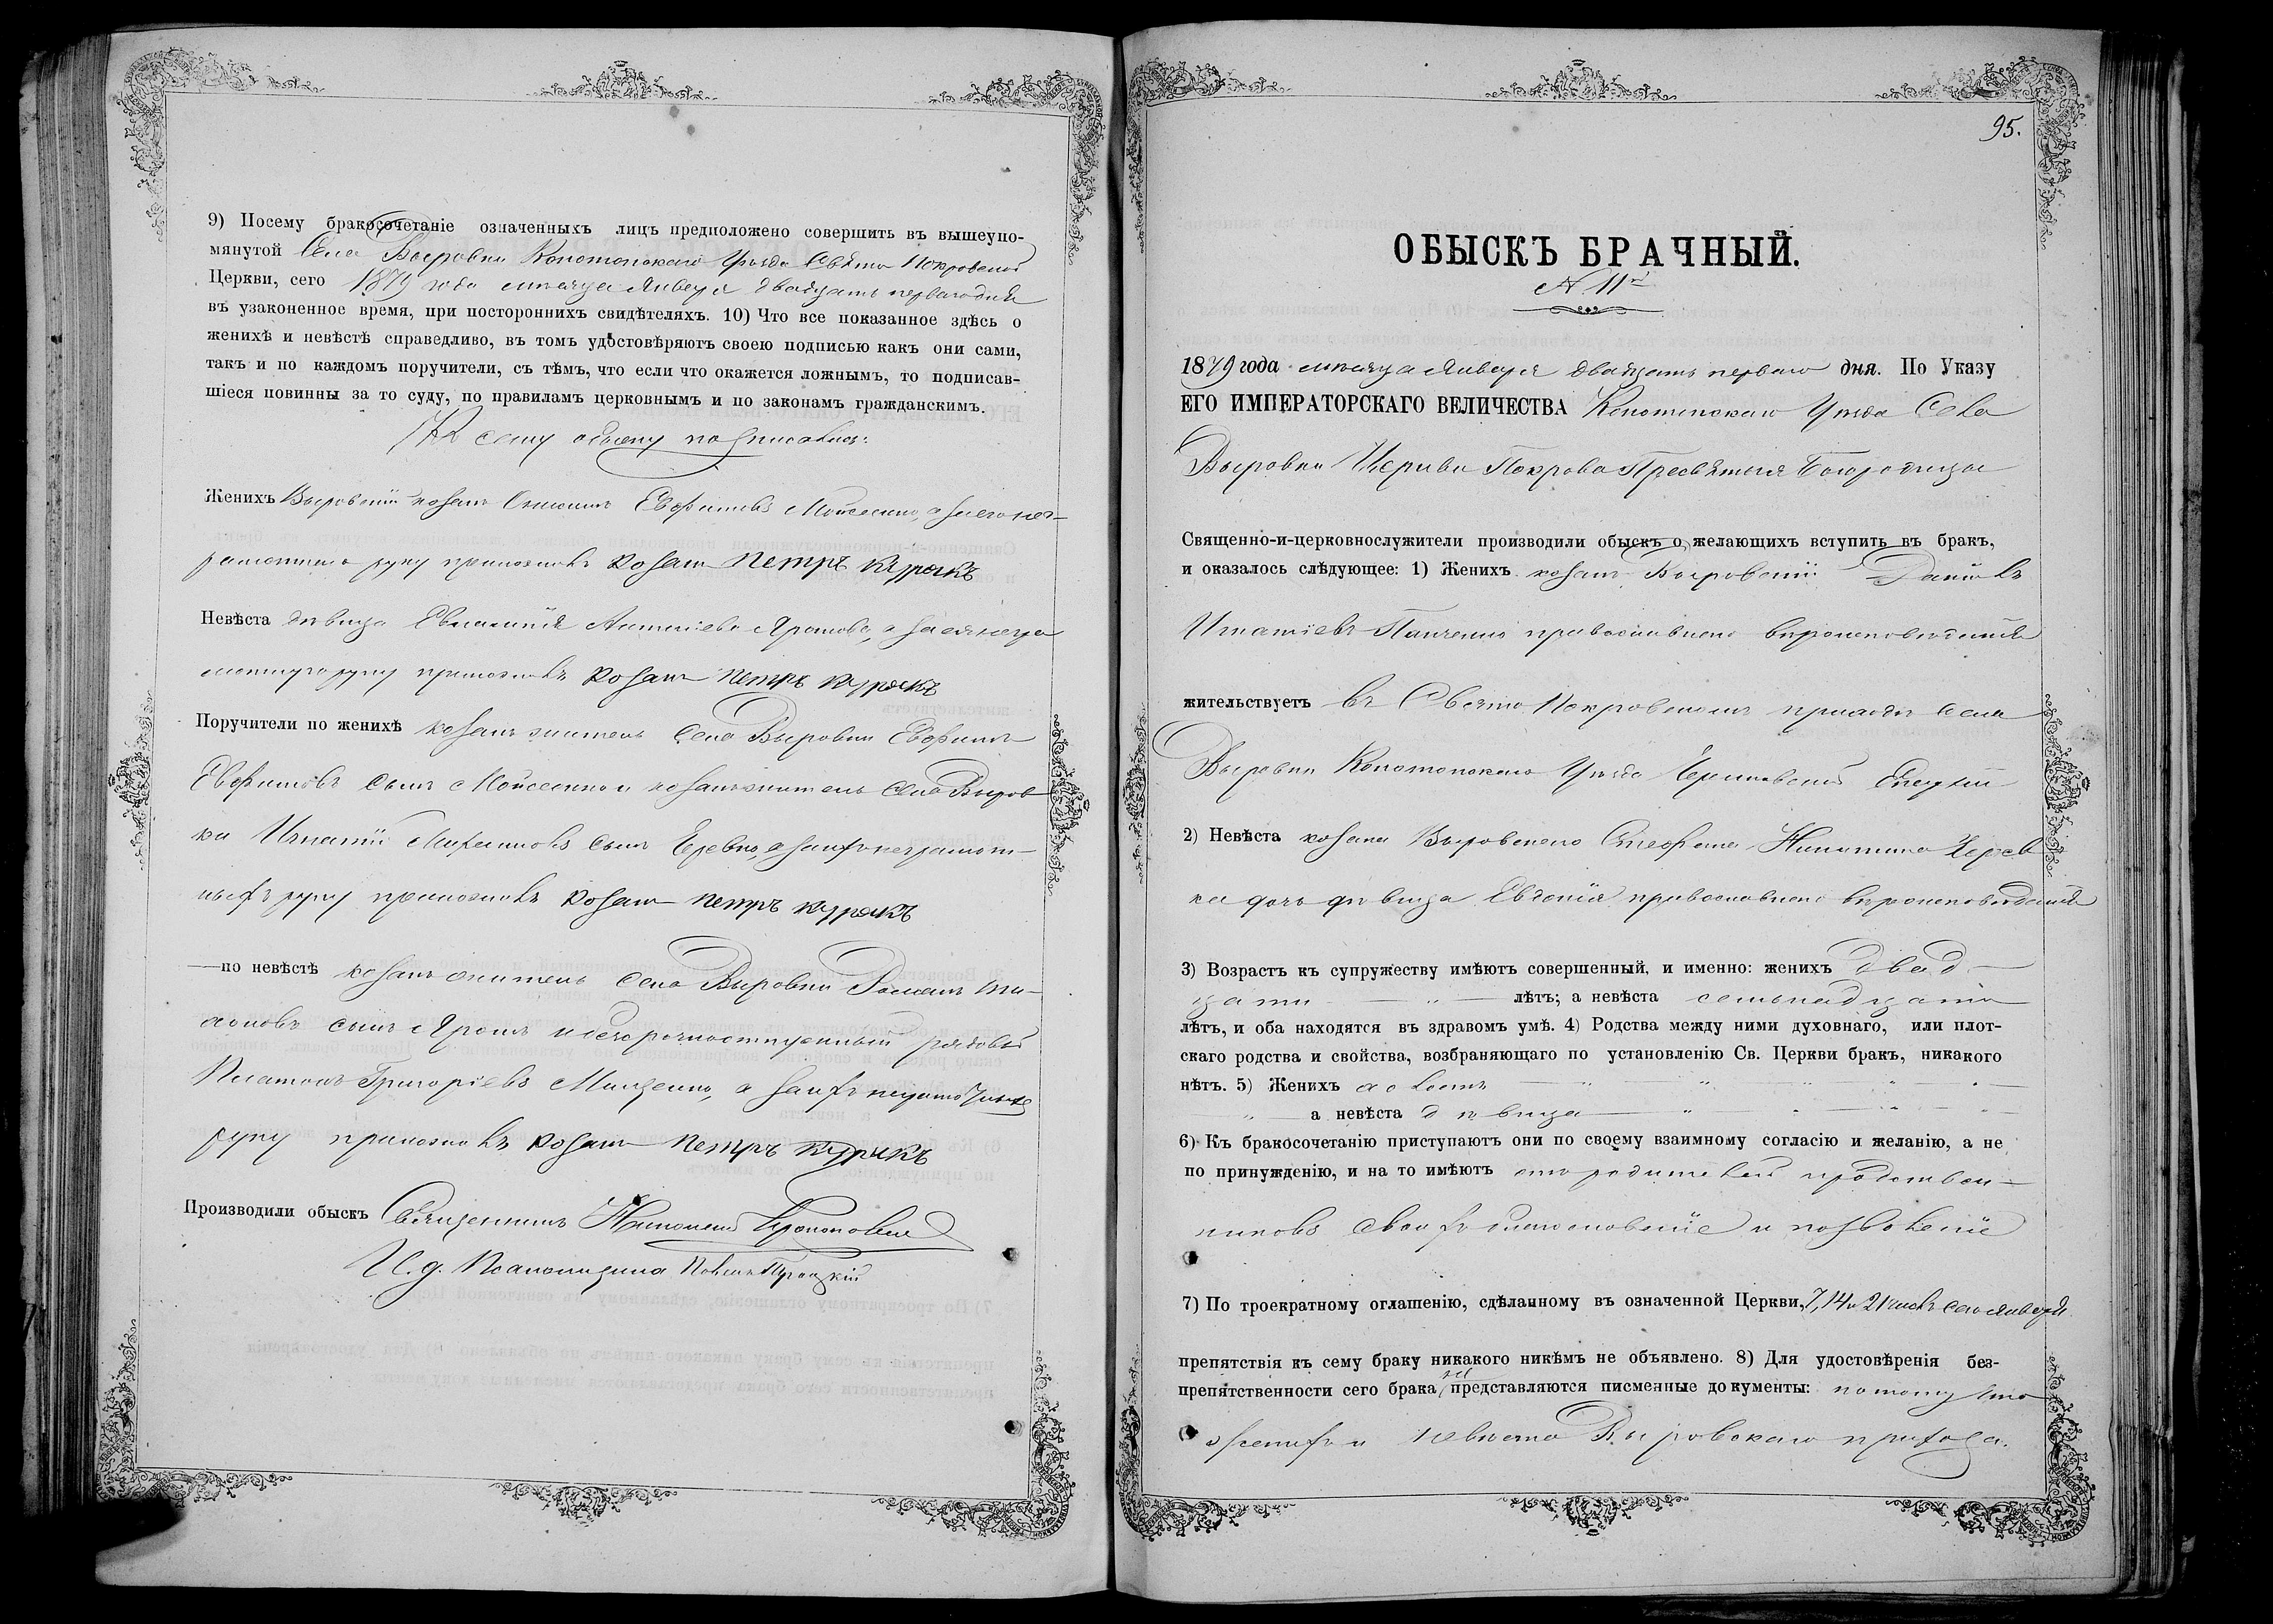 9) Посему бракосочетаніе означенныхъ лицъ предположено совершить въ вышеупо-
мянутой Села Выровки Конотопскаго Уѣзда Свято Покровской
Церкви, сего 1879 года мѣсяца Января двадцать перваго дня
въ узаконенное время, при постороннихъ свидѣтеляхъ. 10) Что все показанное здѣсь о
женихѣ и невѣстѣ справедливо, въ томъ удостовѣряютъ своею подписью какъ они сами,
такъ и по каждомъ поручители, съ тѣмъ, что если что окажется ложнымъ, то подписав-
шіеся повинны за то суду, по правиламъ церковнымъ и по законамъ гражданскимъ.
Къ сему обыску подписались:
Женихъ Выровскій козакъ Евфимовъ Мойсеенко, а за его нег-
рамотнаго руку приложилъ козакъ Петръ Курракъ
Невѣста дѣвица Евлампія Антоніева Ярошова, а за ея негра
мотную руку приложилъ козакъ Петръ Курракъ
Поручители по женихѣ козакъ житель Села Выровки Евфимъ
Евфимовъ сынъ Мойсеенко и козакъ житель Села Выров
ки Игнатій сынъ а за ихъ неграмот-
ныхъ руку приложилъ козакъ Петръ Курракъ
— по невѣстѣ козакъ житель Села Выровки Романъ
сынъ Ярошъ и безсрочноотпускный рядовый
Платонъ Григоріевъ а за ихъ неграмотныхъ
руку приложилъ козакъ Петръ Курракъ
Производили обыскъ Священникъ
И. д. Псаломщика Троицкій
95.
ОБЫСКЪ БРАЧНЫЙ.
№ 11й
1879 года мѣсяца Января двадцать перваго дня. По Указу
ЕГО ИМПЕРАТОРСКАГО ВЕЛИЧЕСТВА Конотопскаго Уѣзда Села
Выровки Церкви Покрова Пресвятыя Богородицы
Священно-и-церковнослужители производили обыскъ о желающихъ вступить въ бракъ,
и оказалось слѣдующее: 1) Женихъ козакъ Выровскій Даніилъ
Игнатіевъ Панченко православнаго вѣроисповѣданія
жительствуетъ въ Свято Покровскомъ приходѣ Села
Выровки Конотопскаго Уѣзда Черниговской Епархіи
2) Невѣста козака Выровскаго Стефана Никитина Черев
ка дочь дѣвица Евгенія православнаго вѣроисповѣданія
3) Возрастъ къ супружеству имѣютъ совершенный, и именно: женихъ двад-
цати — „ — лѣтъ; а невѣста семьнадцати
лѣтъ, и оба находятся въ здравомъ умѣ. 4) Родства между ними духовнаго, или плот-
скаго родства и свойства, возбраняющаго по установленію Св. Церкви бракъ, никакого
нѣтъ. 5) Женихъ холостъ — „ — „ — „ —
— „ — а невѣста дѣвица — „ — „ —
6) Къ бракосочетанію приступаютъ они по своему взаимному согласію и желанію, а не
по принужденію, и на то имѣютъ отъ родителей и родствен-
никовъ своихъ благословеніе и позволеніе
7) По троекратному оглашенію, сдѣланному въ означенной Церкви, 7, 14 и 21 числъ сего Января
препятствія къ сему браку никакого никѣмъ не объявлено. 8) Для удостовѣренія без-
препятственности сего брака не представляются писменные документы: потому что
женихъ и невѣста Выровскаго прихода.